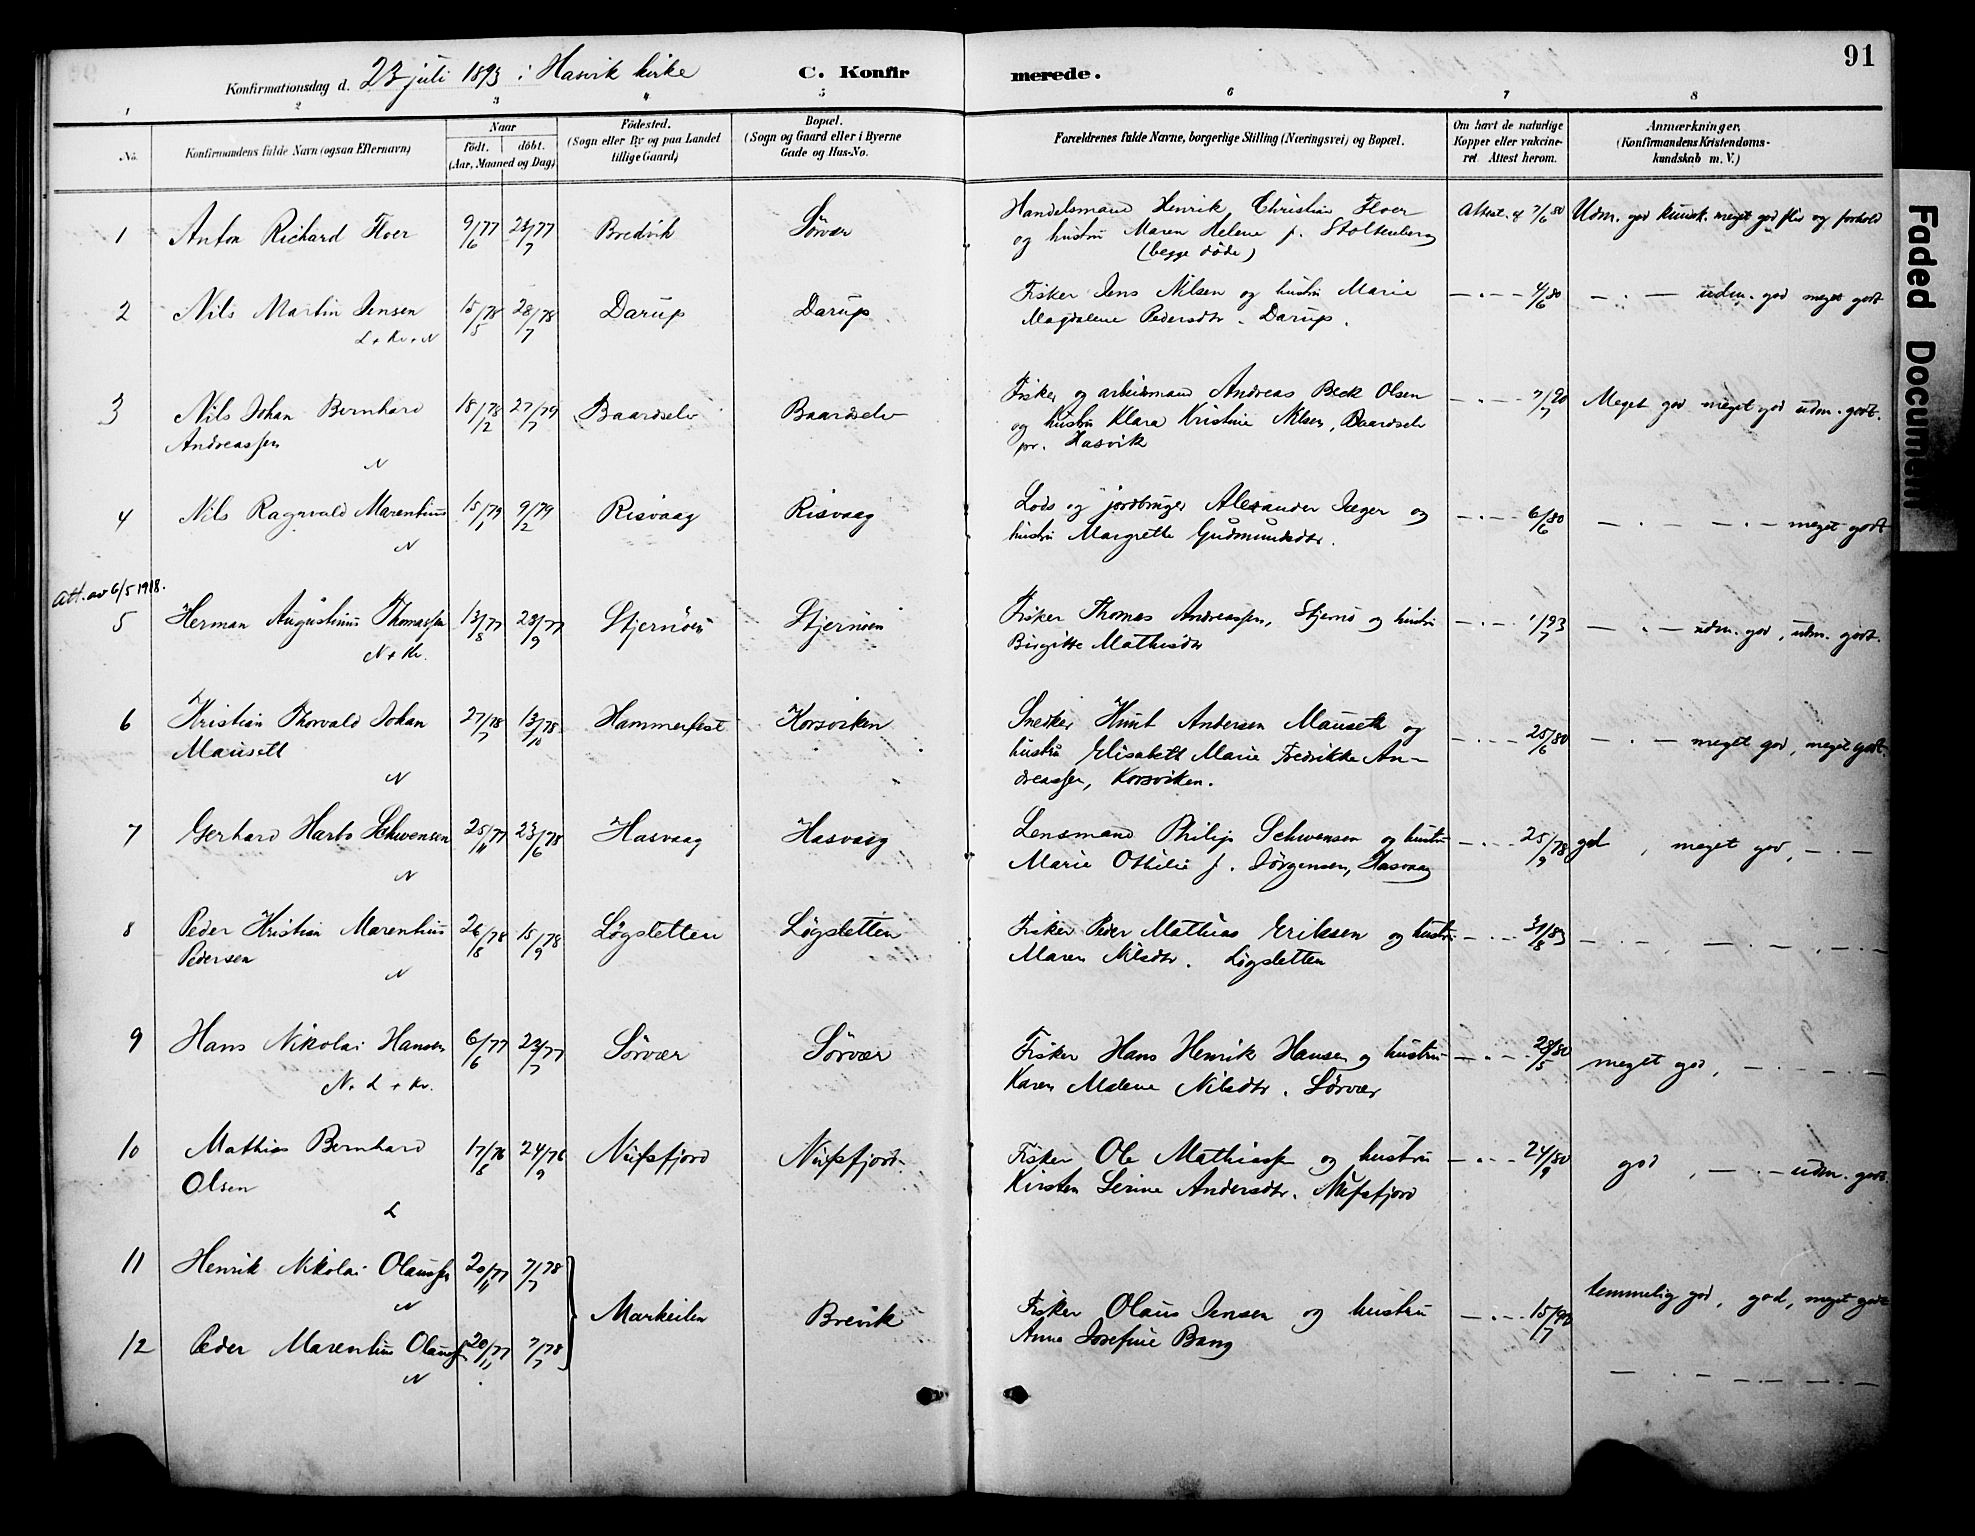 91
Konfirmationsdag d. 23 juli 1893 i Hasvik kirke C. Konfirmerede.
1 2 3 4 5 6 7 8
No. Konfirmandens fulde Navn (ogsaa Efternavn) Naar födt. döbt. (Aar, Maaned og Dag) Födested. (Sogn eller By og paa Landet tillige Gaard) Bopæl. (Sogn og Gaard eller i Byerne Gade og Hus-No. Forældrenes fulde Navne, borgerlige Stilling (Næringsvei) og Bopæl. Om havt de naturlige Kopper eller vakcineret. Attest herom. Anmærkninger, (Konfirmandens Kristendomskundskab m. V.)
1 Anton Richard Floer 9/6 77 24/7 77 Bredvik Sørvær Handelsmand Henrik Christian Floer Attest. af 7/6 80 Udm. god kundsk. meget god flid og forhold
og hustru Maren Helene f. Stoltenberg
(begge døde)
2 Nils Martin Jensen 15/5 78 28/7 78 Darup Darup Fisker Jens Nilsen og hustru Marie — . — 4/6 80 — . — udm. god meget godt
L + Kv + N Magdalene Pedersdtr. Darup.
3 Nils Johan Bernhard 18/2 78 27/7 79 Baardselv Baardselv Fisker og arbeidsmand Andreas Beck Olsen — . — 7/7 90 Meget god meget god udm. godt.
Andreassen og hustru Klara Kristine Nilsen, Baardselv
N pr. Hasvik
4 Nils Ragnvald Marenthius 15/1 79 9/2 79 Risvaag Risvaag Lods og jordbruger Alexander Jæger og — . — 6/6 80 — . — — . — meget godt
N hustru Margrethe Gudmundsdtr.
Att. av 6/5 1918.
5 Herman Augustinus Thomassen 13/8 77 23/9 77 Stjernöen Stjernöen Fisker Thomas Andreassen, Stjernö og hustru — . — 1/7 93 — . — udm. god, udm. godt.
N + Kv. Birgitte Mathisdtr
6 Kristian Thorvald Johan 27/7 78 13/10 78 Hammerfest Korsviken Snedker Knut Andersen Mauseth og — . — 25/6 80 — . — meget god, meget godt.
Mausett hustru Elisabeth Marie Fredrikke An-
N dreassen, Korsviken.
7 Gerhard Harbo Schwensen 25/11 77 23/6 78 Hasvaag Hasvaag Lensmand Philip Schwensen og hustru — . — 25/9 78 god, meget god, — . —
N Marie Othilie f. Jörgensen, Hasvaag
8 Peder Kristian Marenthius 26/8 78 15/9 78 Lögsletten Lögsletten Fisker Peder Mathias Eriksen og hustru — . — 31/8 83 — . — , — . — , — . —
Pedersen Maren Nilsdtr. Lögsletten
N
9 Hans Nikolai Hansen 6/6 77 22/7 77 Sörvær Sörvær Fisker Hans Henrik Hansen og hustru — . — 28/5 80 meget god, — . — . —
N. L + Kv. Karen Malene Nilsdtr. Sörvær
10 Mathias Bernhard 17/8 76 24/9 76 Nufsfjord Nufsfjord. Fisker Ole Mathiassen og hustru — . — 24/9 80 god, — . — udm. godt.
Olsen Kirsten Serine Andersdtr. Nufsfjord
L
11 Henrik Nikolai Olaussen 20/11 77 7/7 78
N Markeilen Brevik Fisker Olaus Jensen og hustru — . — temmelig god, god, meget godt
12 Peder Marenthius Olauss. 20/11 77 7/7 78 Anna Josefine Bang
N — . — . — . —
Faded Document